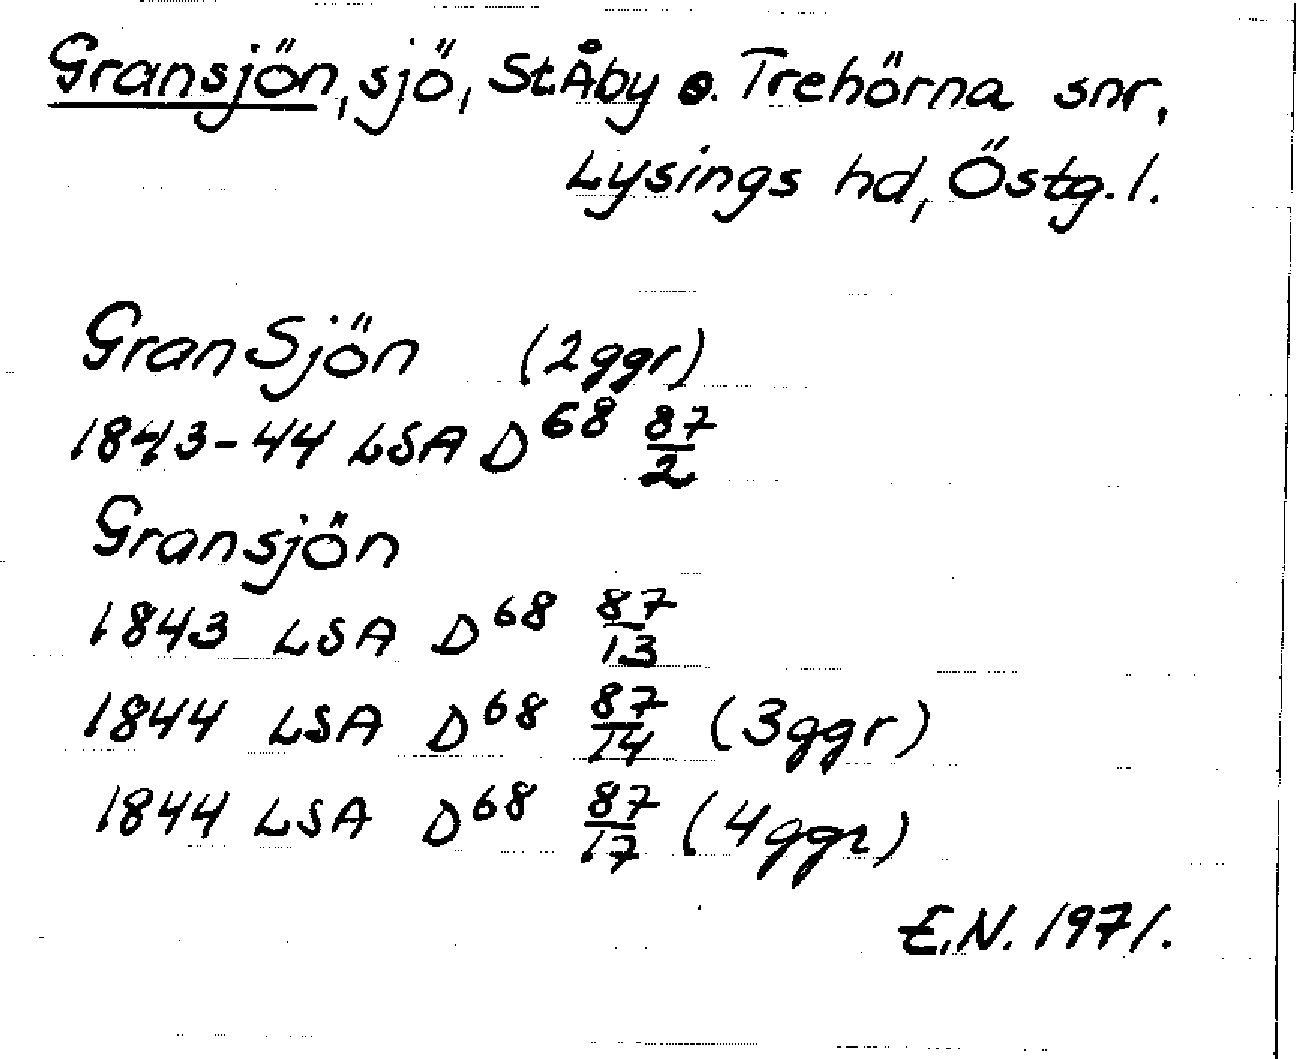 Gransjön, sjö, St.Åby o. Trehörna snr,
Lysings hd, Östg. l.
GranSjön (2ggr)
1843-44 LSA D68 87/2
Gransjön
1843 LSA D68 87/13
1844 LSA D68 87/14 (3ggr)
1844 LSA D68 87/17 (4ggr)
E.N. 1971.